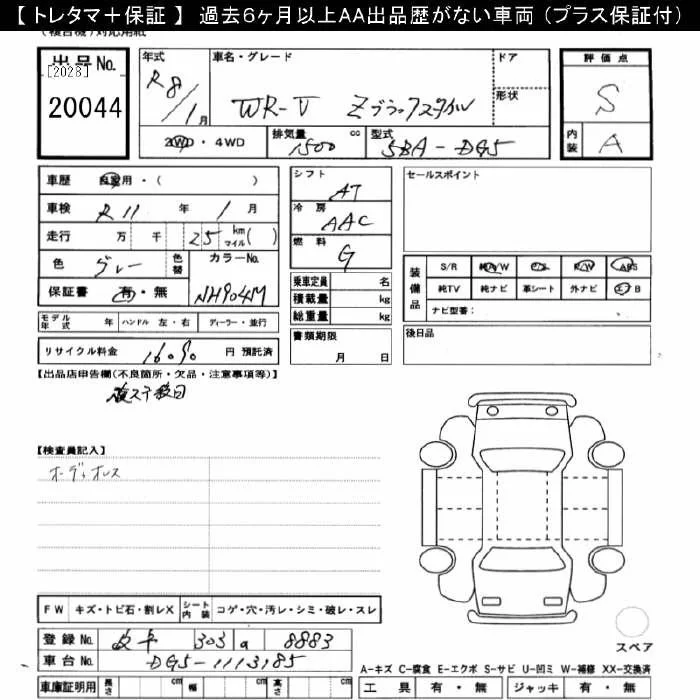 【 トレタマ＋保証 】 過去6ヶ月以上AA出品歴がない車両 (プラス保証付)
(複合機)対応用紙
出品No. 年式 車名・グレード ドア 評価点
[2028] R8 形状 S
20044 /1月 WR-V Zブラックスタイル
2WD・4WD 排気量 cc 型式 内装 A
1500 5BA-DG5
車歴 自家用・( ) シフト AT セールスポイント
車検 R11 年 1 月 冷房 AAC
走行 万 千 25 km マイル ( ) 燃料 G
色 グレー 色替 カラーNo. 装備品 S/R 純A/W P/S P/W ABS
保証書 有・無 NH904M 乗車定員 名 純TV 純ナビ 革シート 外ナビ エアB
積載量 kg ナビ型番：
モデル年式 年 ハンドル 左・右 ディーラー・並行 総重量 kg
リサイクル料金 16090 円 預託済 書類期限 月 日 後日品
【出品店申告欄(不良箇所・欠品・注意事項等)】
【検査員記入】
オーディオレス
FW キズ・トビ石・割レX シート内装 コゲ・穴・汚レ・シミ・破レ・スレ
登録No. 303 a 8883
スペア
車台No. DG5-1113185
A-キズ C-腐食 E-エクボ S-サビ U-凹ミ W-補修 XX-交換済
車庫証明用 長さ cm 幅 cm 高さ cm 工具 有・無 ジャッキ 有・無